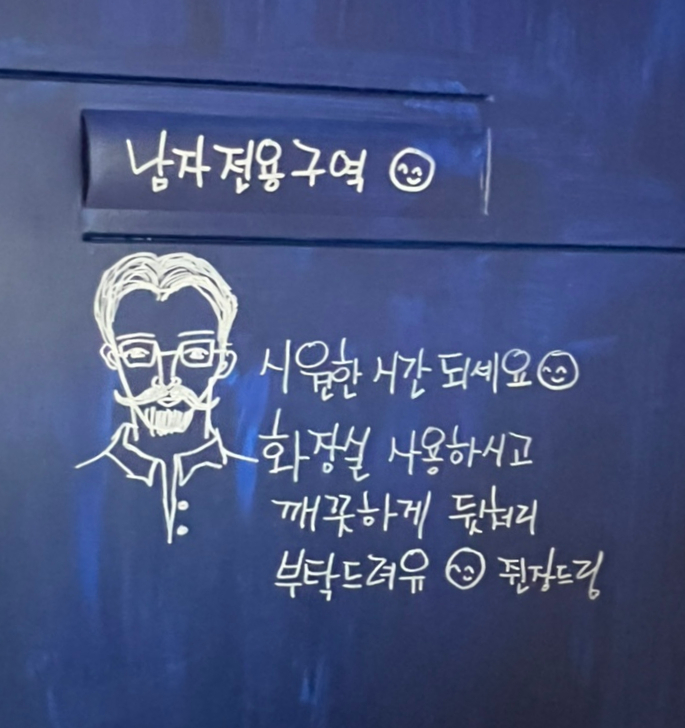 남자전용구역
시원한 시간 되세요
화장실 사용하시고
깨끗하게 뒷처리
부탁드려유 쥔장드림